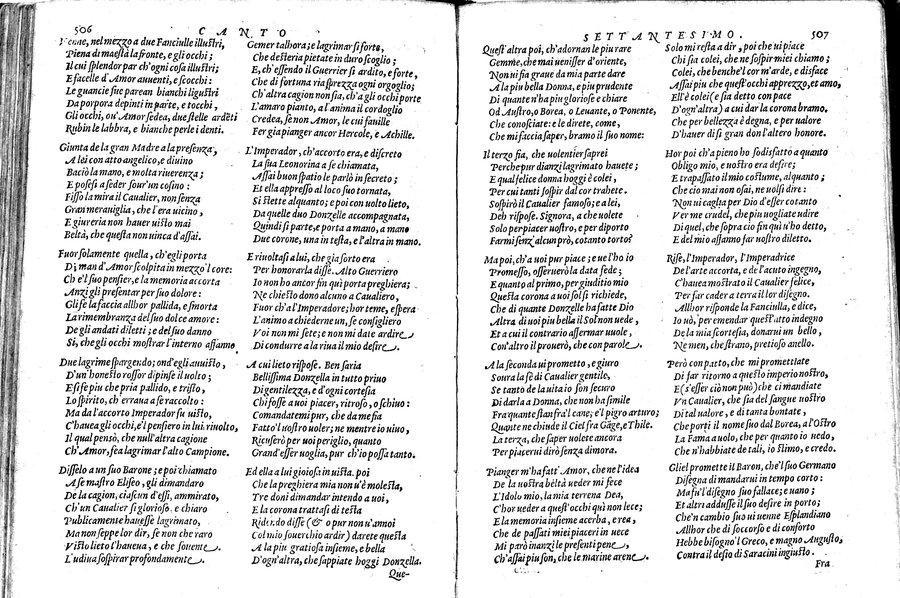 506 CANTO
Venne, nel mezzo a due Fanciulle illustri,
Piena di maestà la fronte, e gli occhi;
Il cui splendor par ch'ogni cosa illustri;
E facelle d'Amor auuenti, e scocchi:
Le guancie sue parean bianchi ligustri
Da porpora depinti in parte, e tocchi,
Gli occhi, ou' Amor sedea, due stelle ardēti
Rubin le labbra, e bianche perle i denti.
Giunta de la gran Madre a la presenza,
A lei con atto angelico, e diuino
Baciò la mano, e molta riuerenza;
E posesi a seder sour'un cosino:
Fisso la mira il Caualier, non senza
Gran merauiglia, che l'era uicino,
E giureria non hauer uisto mai
Beltà, che questa non uinca d'assai.
Fuor solamente quella, ch'egli porta
Di man d'Amor scolpita in mezzo'l core:
Ch'e'l suo pensier, e la memoria accorta
Anzi gli presentar per suo dolore:
Gli fe la faccia alhor pallida, e smorta
La rimembranza del suo dolce amore:
De gli andati diletti; e del suo danno
Sì, che gli occhi mostrar l'interno affanno
Due lagrime spargendo; ond'egli auuisto,
D'un honesto rossor dipinse il uolto;
E si fe piu che pria pallido, e tristo,
Lo spirito, ch'erraua a se raccolto:
Ma da l'accorto Imperador fu uisto,
C'hauea gli occhi, e'l pensiero in lui riuolto,
Il qual pensò, che null'altra cagione
Ch'Amor, fea lagrimar l'alto Campione.
Disselo a un suo Barone; e poi chiamato
A se mastro Eliseo, gli dimandaro
De la cagion, ciascun d'essi, ammirato,
Ch'un Caualier sì glorioso, e chiaro
Publicamente hauesse lagrimato,
Ma non seppe lor dir, se non che raro
Visto lieto l'hauena, e che souente
L'udiua sospirar profondamente
Gemer talhora; e lagrimar sì forte,
Che desteria pietate in duro scoglio;
E, ch'essendo il Guerrier sì ardito, e forte,
Che di fortuna ria sprezza ogni orgoglio;
Ch'altra cagion non sia, ch'a gli occhi porte
L'amaro pianto, a l'anima il cordoglio
Credea, se non Amor, le cui fauille
Fer gia pianger ancor Hercole, e Achille.
L'Imperador, ch'accorto era, e discreto
La sua Leonorina a se chiamata,
Assai buon spatio le parlò in secreto;
Et ella appresso al loco suo tornata,
Si stette alquanto; e poi con uolto lieto,
Da quelle duo Donzelle accompagnata,
Quindi si parte, e porta a mano, a mano
Due corone, una in testa, e l'altra in mano.
E riuoltasi a lui, che gia sorto era
Per honorarla disse. Alto Guerriero
Io non ho ancor fin quì porta preghiera;
Ne chiesto dono alcuno a Caualiero,
Fuor ch'a l'Imperadore; hor teme, e spera
L'animo a chiederne un, se consigliero
Voi non mi sete; e non mi date ardire
Di condurre a la riua il mio desire.
A cui lieto rispose. Ben saria
Bellissima Donzella in tutto priuo
Di gentilezza, e d'ogni cortesia
Chi fosse a uoi piacer, ritroso, o schiuo:
Comandatemi pur, che da me fia
Fatto'l uostro uoler; ne mentre io uiuo,
Ricuserò per uoi periglio, quanto
Grand'esser uoglia, pur ch'io possa tanto.
Ed ella a lui gioiosa in uista. poi
Che la preghiera mia non u'è molesta,
Tre doni dimandar intendo a uoi,
E la corona trattasi di testa
Ridendo disse (& o pur non u'annoi
Col mio souerchio ardir) darete questa
A la piu gratiosa insieme, e bella
D'ogn'altra, che sappiate hoggi Donzella.
Que-
SETTANTESIMO. 507
Quest'altra poi, ch'adornan le piu rare
Gemme, che mai uenisser d'oriente,
Non ui sia graue da mia parte dare
A la piu bella Donna, e piu prudente
Di quante n'ha piu gloriose e chiare
Od Austro, o Borea, o Leuante, o Ponente,
Che conosciate: e le direte, come,
Che mi faccia saper, bramo il suo nome:
Il terzo fia, che uolentier saprei
Perche pur dianzi lagrimato hauete;
E qual felice donna hoggi è colei,
Per cui tanti sospir dal cor trahete.
Sospirò il Caualier famoso; e a lei,
Deh rispose. Signora, a che uolete
Solo per piacer uostro, e per diporto
Farmi senz'alcun prò, cotanto torto?
Ma poi, ch'a uoi pur piace; e ue l'ho io
Promesso, osseruerò la data fede;
E quanto al primo, per giuditio mio
Questa corona a uoi sol si richiede,
Che di quante Donzelle ha fatto Dio
Altra di uoi piu bella il Sol non uede,
Et a cui il contrario affermar uuole,
Con'altro il prouerò, che con parole.
A la seconda ui prometto, e giuro
Soura la fè di Caualier gentile,
Se tanto de la uita io son securo
Di darla a Donna, che non ha simile
Fra quante stan fra'l cane; e'l pigro arturo;
Quante ne chiude il Ciel fra Gāge, e Thile.
La terza, che saper uolete ancora
Per piacerui dirò senza dimora.
Pianger m'ha fatt' Amor, che ne l'idea
De la uostra beltà ueder mi fece
L'Idolo mio, la mia terrena Dea,
C'hor ueder a quest'occhi quì non lece;
E la memoria insieme acerba, e rea,
Che de passati miei piaceri in uece
Mi parò inanzi le presenti pene,
Ch'assai piu son, che le marine arene.
Solo mi resta a dir, poi che ui piace
Chi sia colei, che ne sospir miei chiamo;
Colei, che benche'l cor m'arde, e disface
Assai piu che quest'occhi apprezzo, et amo,
Ell'è colei (e sia detto con pace
D'ogn'altra) a cui dar la corona bramo,
Che per bellezza è degna, e per ualore
D'hauer di sì gran don l'altero honore.
Hor poi ch'a pieno ho sodisfatto a quanto
Obligo mio, e uostro era desire;
E trapassato il mio costume, alquanto;
Che cio mai non osai, ne uolsi dire:
Non ui caglia per Dio d'esser cotanto
Ver me crudel, che piu uogliate udire
Di quel, che sopra cio fin quì u'ho detto,
E del mio affanno far uostro diletto.
Rise, l'Imperador, l'Imperadrice
De l'arte accorta, e de l'acuto ingegno,
C'hauea mostrato il Caualier felice,
Per far cader a terra il lor disegno.
Allhor risponde la Fanciulla, e dice,
Io uò, per emendar quest'atto indegno
De la mia scortesia, donarui un bello,
Ne men, che strano, pretioso anello.
Però con patto, che mi promettiate
Di far ritorno a questo imperio nostro,
E (s'esser ciò non può) che ci mandiate
Vn Caualier, che sia del sangue uostro
Di tal ualore, e di tanta bontate,
Che porti il nome suo dal Borea, al'Ostro
La Fama a uolo, che per quanto io uedo,
Che n'habbiate de tali, io stimo, e credo.
Gliel promette il Baron, che'l suo Germano
Disegna di mandarui in tempo corto:
Ma fu'l disegno suo fallace; e uano;
Et altri addusse il suo desire in porto;
Che'n cambio suo ui uenne Esplandiano
Allhor che di soccorso e di conforto
Hebbe bisogno'l Greco, e magno Augusto,
Contra il desio di Saracini ingiusto.
Fra